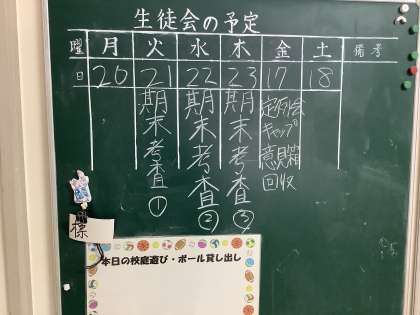 生徒会の予定
曜 月 火 水 木 金 土 備考
日 20 21 22 23 17 18
期末考査①
期末考査②
期末考査③
定例会
キャップ
意見箱
回収
様
本日の校庭遊び・ボール貸し出し